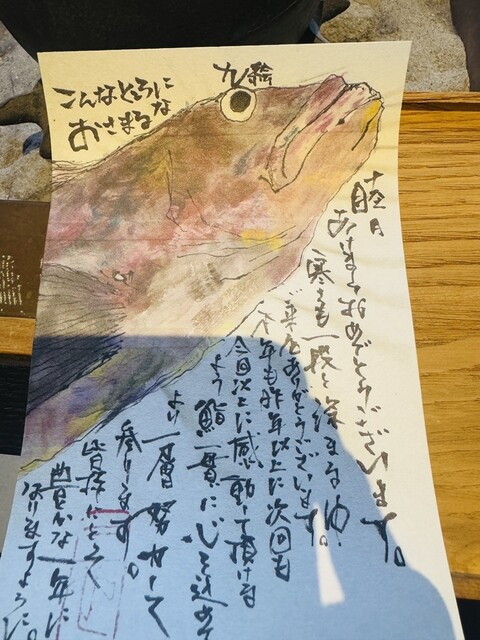 九絵
こんなところに
おさまるな
睦月
あけましておめでとうございます。
寒さも一段と深まる中
ご来店ありがとうございます。
本年も昨年以上に次回も
今回以上に感動して頂ける
よう鮨一貫に心を込めて
より一層努力して
参ります。
皆様にとって
豊かな一年に
なりますように。